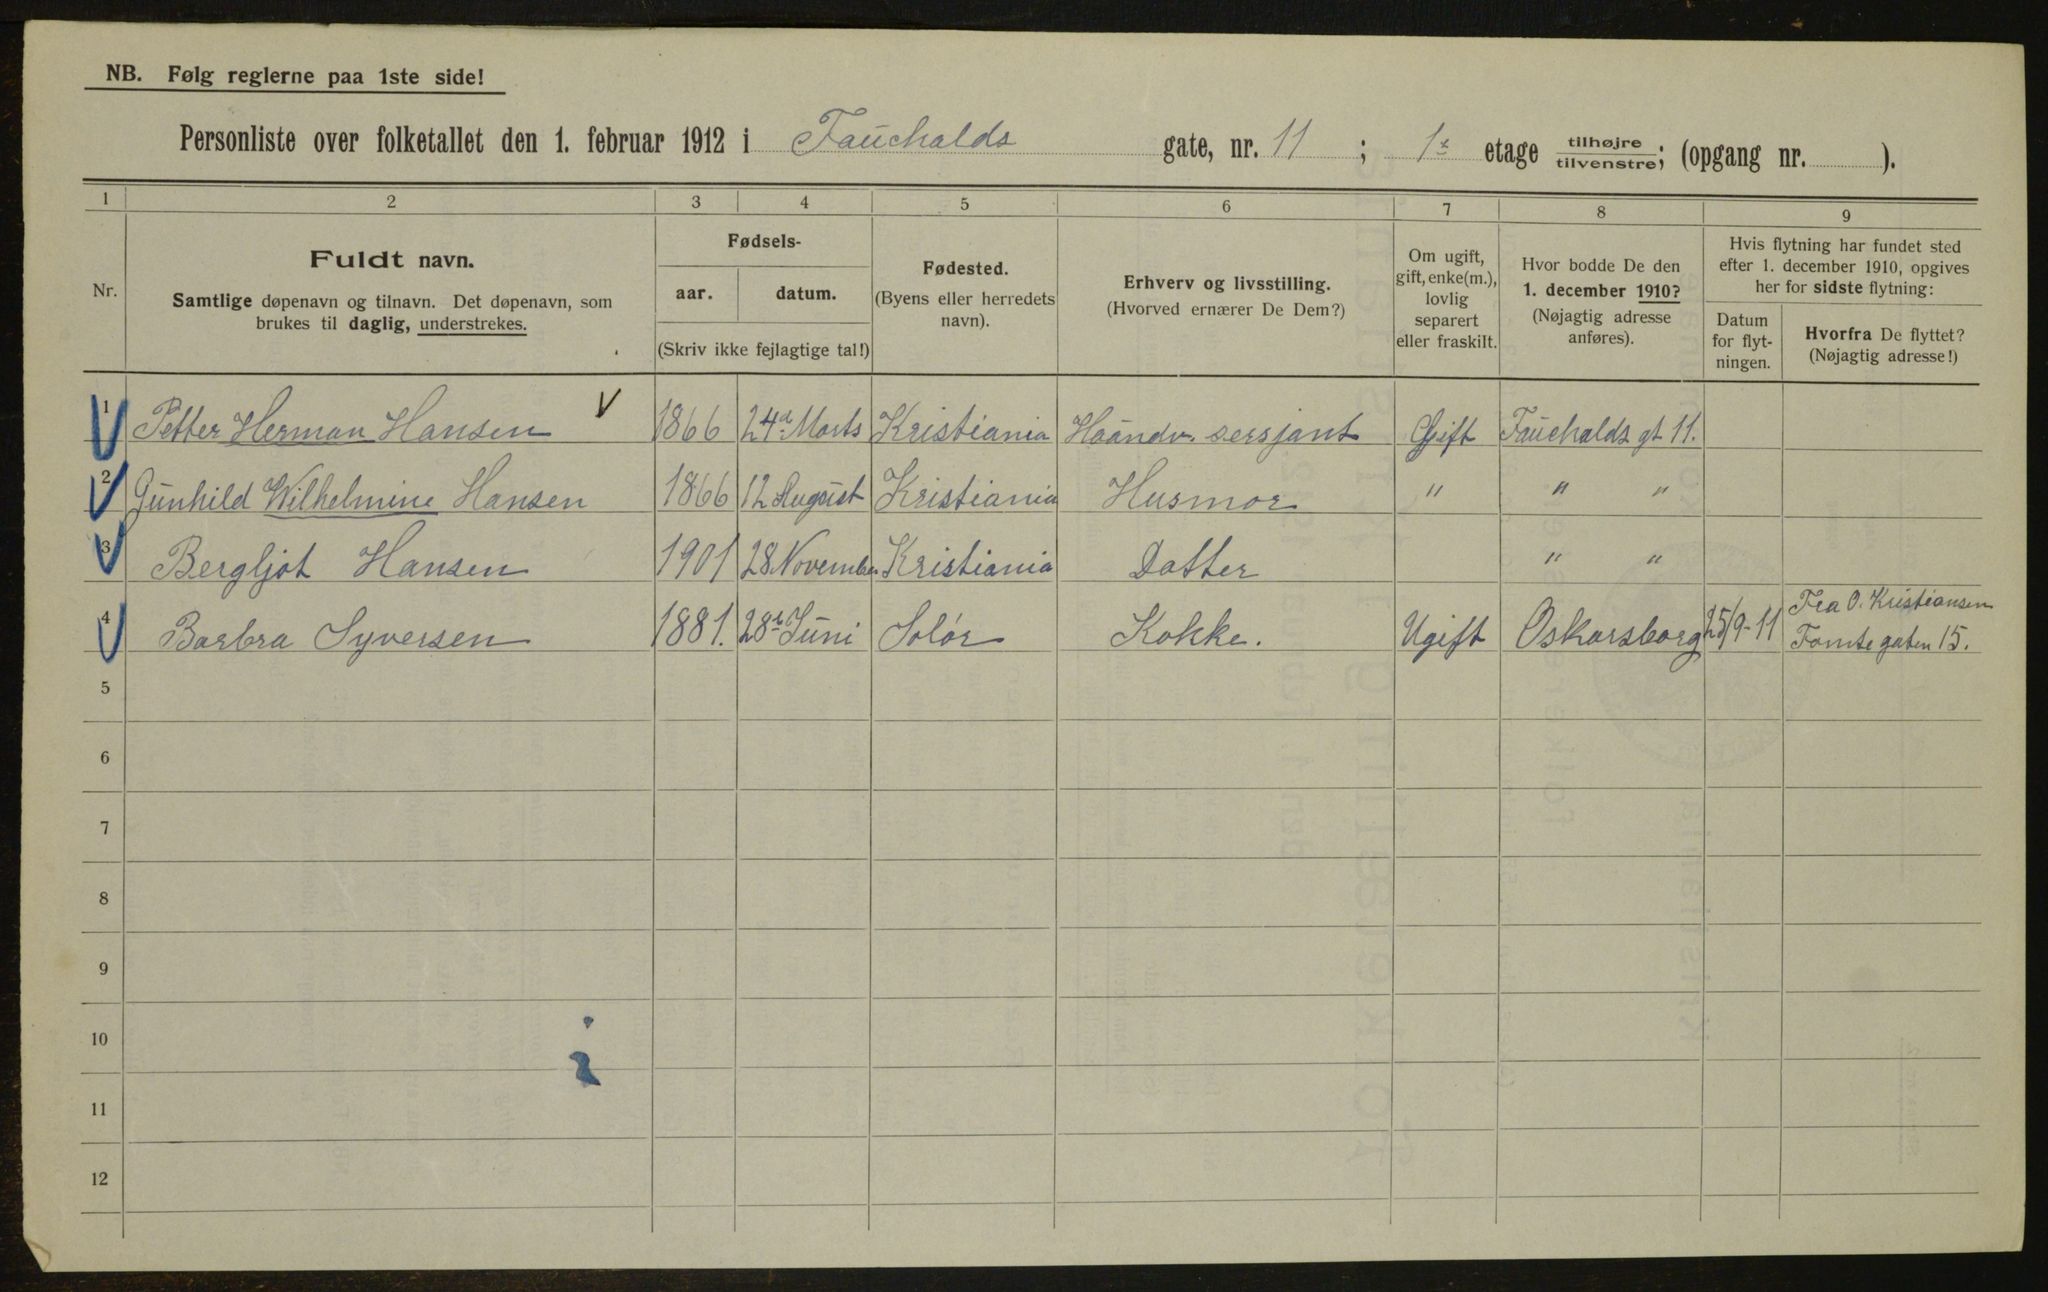 NB. Følg reglerne paa 1ste side!
Personliste over folketallet den 1. februar 1912 i Fauchalds gate, nr. 11 ; 1ste etage tilhøjre tilvenstre; (opgang nr. ).
1 2 3 4 5 6 7 8 9
Nr.
Fuldt navn.
Samtlige døpenavn og tilnavn. Det døpenavn, som
brukes til daglig, understrekes.
Fødsels-
aar. datum.
(Skriv ikke fejlagtige tal!)
Fødested.
(Byens eller herredets
navn).
Erhverv og livsstilling.
(Hvorved ernærer De Dem?)
Om ugift,
gift, enke(m.),
lovlig
separert
eller fraskilt.
Hvor bodde De den
1. december 1910?
(Nøjagtig adresse
anføres).
Hvis flytning har fundet sted
efter 1. december 1910, opgives
her for sidste flytning:
Datum
for flyt-
ningen.
Hvorfra De flyttet?
(Nøjagtig adresse!)
1 Petter Herman Hansen 1866 24d Marts Kristiania Haandv. sersjant Gift Fauchalds gt 11.
2 Gunhild Wilhelmine Hansen 1866 12 August Kristiania Husmor " " "
3 Bergljot Hansen 1901 28 November Kristiania Datter " "
4 Barbra Syversen 1881. 28de Juni Solør Kokke. Ugift Oskarsborg 25/9-11 Fra O. Kristiansen
Tomtegaten 15.
5
6
7
8
9
10
11
12